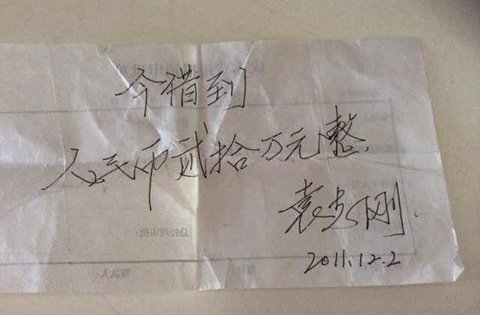 今借到
人民币贰拾万元整
袁志刚
2011.12.2